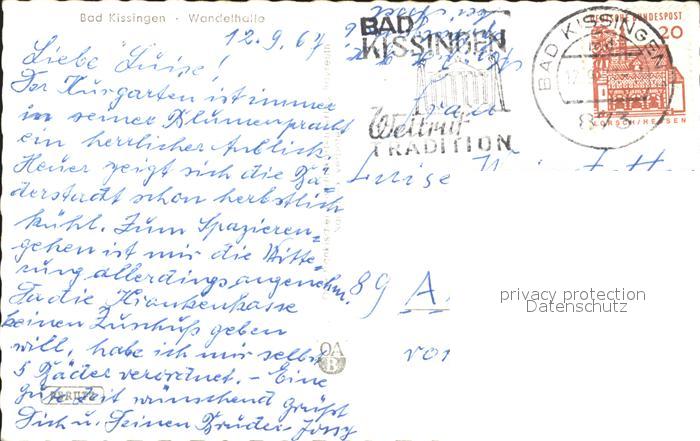 Bad Kissingen - Wandelhalle
12.9.67
Liebe Luise!
Der Kurgarten ist immer
in seiner Blumenpracht
ein herrlicher Anblick.
Heuer zeigt sich die Bä-
derstadt schon herbstlich
kühl. Zum Spazieren-
gehen ist mir die Witte-
rung allerdings angenehm.
Da die Krankenkasse
keinen Zuschuß geben
will, habe ich mir selbst
5 Bäder verordnet. - Eine
gute Zeit wünschend grüßt
Dich u. Deinen Bruder
BAD
KISSINGEN
Weltruf
TRADITION
BAD KISSINGEN
873
DEUTSCHE BUNDESPOST
20
LORSCH/HESSEN
Luise
89 A
vor
privacy protection
Datenschutz